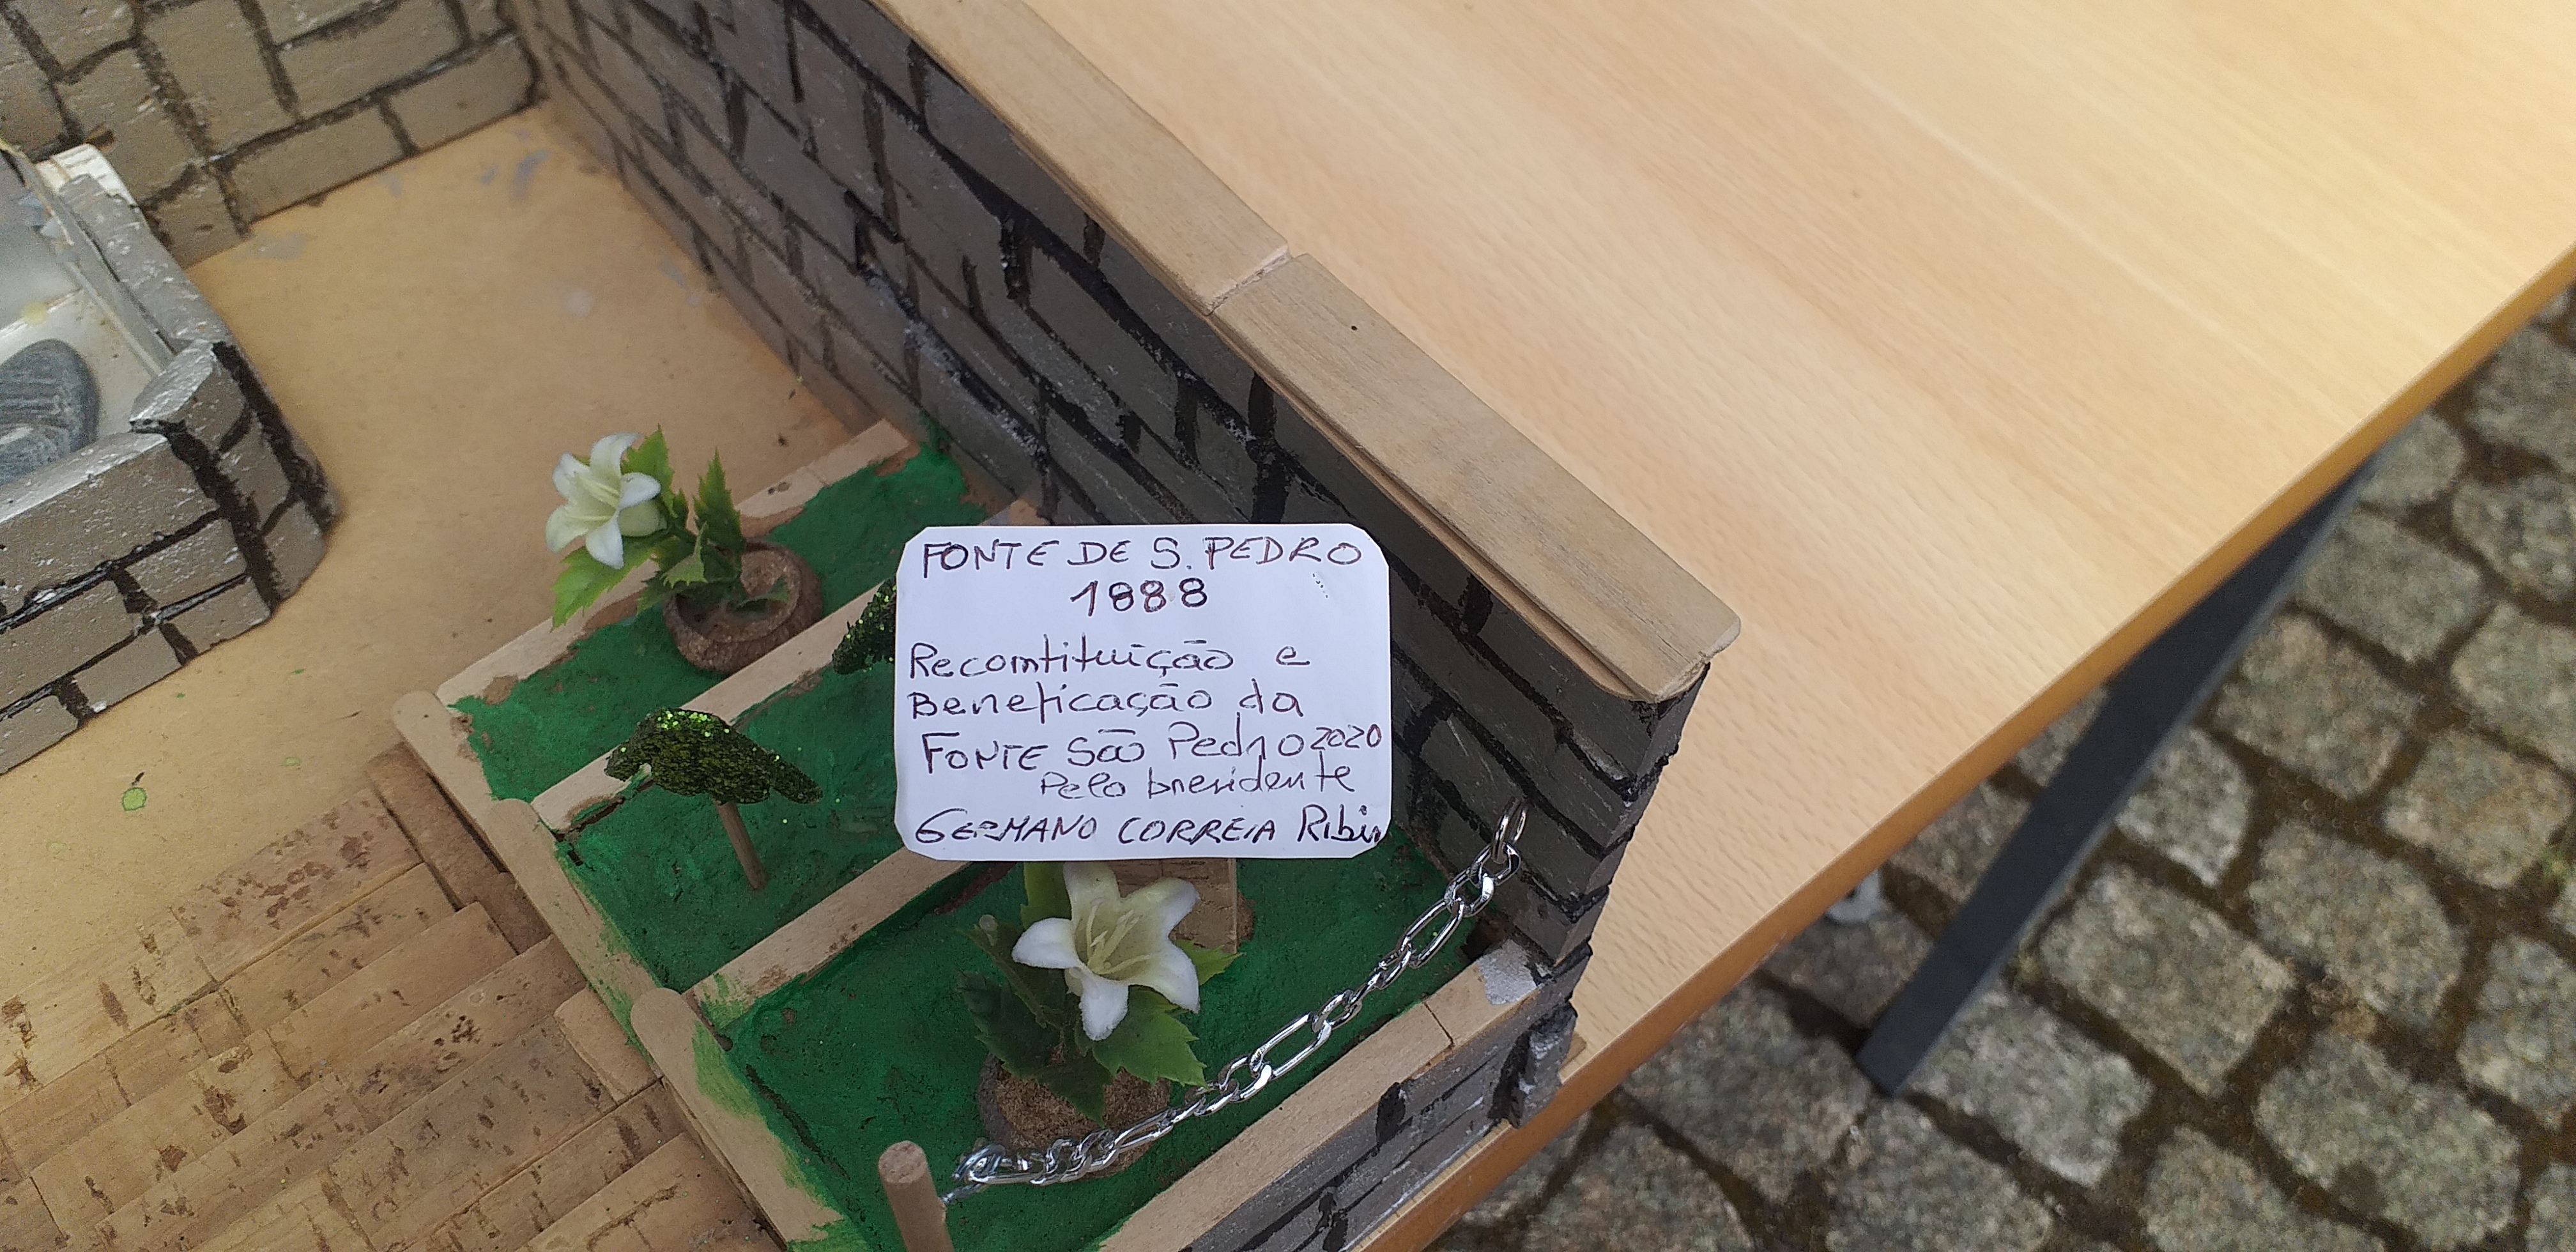 FONTE DE S. PEDRO
1888
Recomtituição e
Beneficação da
FONTE São Pedro 2020
Pelo presidente
GERMANO CORREIA